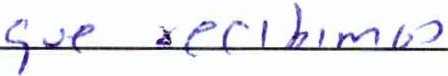 que recibimos